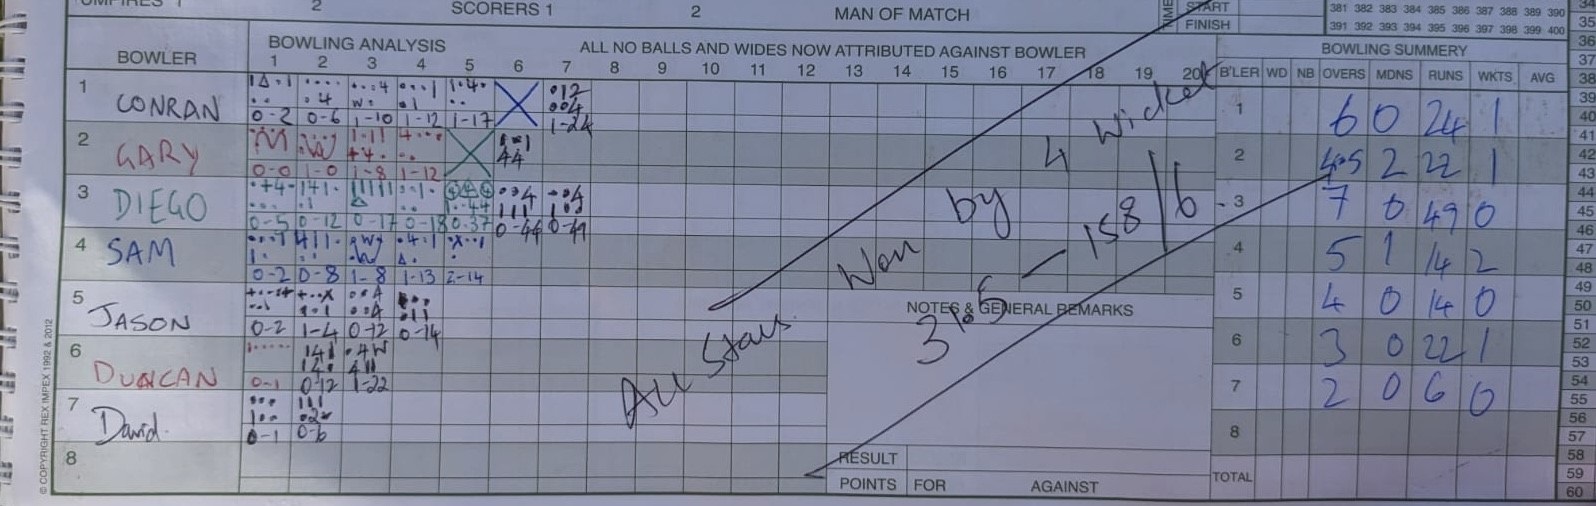 UMPIRES 1 2 SCORERS 1 2 MAN OF MATCH TIME START
FINISH
381 382 383 384 385 386 387 388 389 390
391 392 393 394 395 396 397 398 399 400
BOWLER BOWLING ANALYSIS ALL NO BALLS AND WIDES NOW ATTRIBUTED AGAINST BOWLER
1 2 3 4 5 6 7 8 9 10 11 12 13 14 15 16 17 18 19 20
BOWLING SUMMERY
B'LER WD NB OVERS MDNS RUNS WKTS AVG
1 CONRAN 0-2 0-6 1-10 1-12 1-17 1-24
1 6 0 24 1
2 GARY 0-0 1-0 1-8 1-12
2 4.5 2 22 1
3 DIEGO 0-5 0-12 0-17 0-18 0-37 0-44 0-49
3 7 0 49 0
4 SAM 0-2 0-8 1-8 1-13 2-14
4 5 1 14 2
5 JASON 0-2 1-4 0-12 0-14
5 4 0 14 0
6 DUNCAN 0-1 0-12 1-22
6 3 0 22 1
7 David. 0-1 0-6
7 2 0 6 0
8
8
TOTAL
All Stars Won by 4 Wicket
31.5 — 158/6
NOTES & GENERAL REMARKS
RESULT
POINTS FOR AGAINST
© COPYRIGHT REX IMPEX 1992 & 2012
35
36
37
38
39
40
41
42
43
44
45
46
47
48
49
50
51
52
53
54
55
56
57
58
59
60